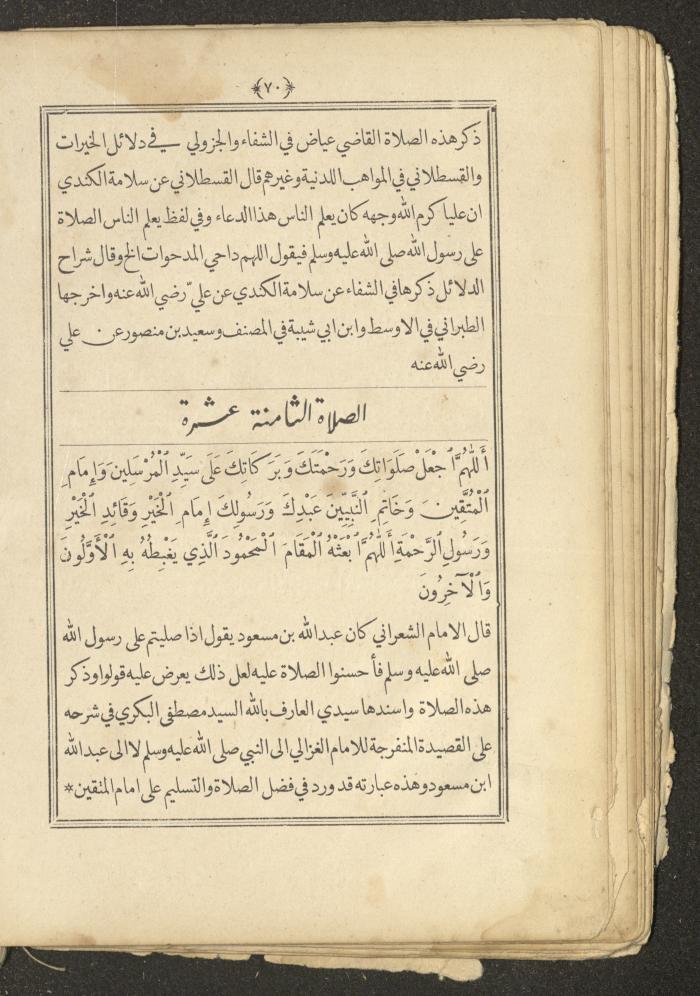 ٧٠
ذكر هذه الصلاة القاضي عياض في الشفاء والجزولي في دلائل الخيرات
والقسطلاني في المواهب اللدنية وغيرهم قال القسطلاني عن سلامة الكندي
ان عليا كرم الله وجهه كان يعلم الناس هذا الدعاء وفي لفظ يعلم الناس الصلاة
على رسول الله صلى الله عليه وسلم فيقول اللهم داحي المدحوات الخ وقال شراح
الدلائل ذكرها في الشفاء عن سلامة الكندي عن علي رضي الله عنه واخرجها
الطبراني في الاوسط وابن ابي شيبة في المصنف وسعيد بن منصور عن علي
رضي الله عنه
الصلاة الثامنة عشرة
أَللّٰهُمَّ ٱجْعَلْ صَلَوَاتِكَ وَرَحْمَتَكَ وَبَرَكَاتِكَ عَلَى سَيِّدِ ٱلْمُرْسَلِينَ وَإِمَامِ
ٱلْمُتَّقِينَ وَخَاتِمِ ٱلنَّبِيِّينَ عَبْدِكَ وَرَسُولِكَ إِمَامِ ٱلْخَيْرِ وَقَائِدِ ٱلْخَيْرِ
وَرَسُولِ ٱلرَّحْمَةِ أَللّٰهُمَّ ٱبْعَثْهُ ٱلْمَقَامَ ٱلْمَحْمُودَ ٱلَّذِي يَغْبِطُهُ بِهِ ٱلْأَوَّلُونَ
وَٱلْآخِرُونَ
قال الامام الشعراني كان عبدالله بن مسعود يقول اذا صليتم على رسول الله
صلى الله عليه وسلم فأحسنوا الصلاة عليه لعل ذلك يعرض عليه قولوا وذكر
هذه الصلاة واسندها سيدي العارف بالله السيد مصطفى البكري في شرحه
على القصيدة المنفرجة للامام الغزالي الى النبي صلى الله عليه وسلم لا الى عبدالله
ابن مسعود وهذه عبارته قد ورد في فضل الصلاة والتسليم على امام المتقين*